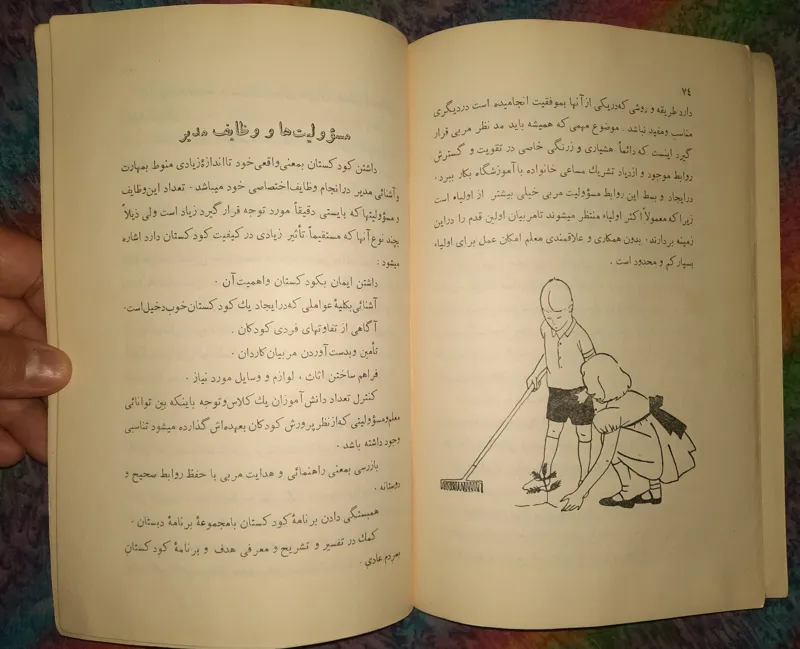 ٧٤
دارد طریقه و روشی که در یکی از آنها بموفقیت انجامیده است در دیگری
مناسب ومفید نباشد . موضوع مهمی که همیشه باید مد نظر مربی قرار
گیرد اینست که دائماً هشیاری و زرنگی خاصی در تقویت و گسترش
روابط موجود و ازدیاد تشریك مساعی خانواده با آموزشگاه بکار ببرد .
درایجاد و بسط این روابط مسؤولیت مربی خیلی بیشتر از اولیاء است
زیرا که معمولاً اکثر اولیاء منتظر میشوند تامربیان اولین قدم را دراین
زمینه بردارند. بدون همکاری و علاقمندی معلم امکان عمل برای اولیاء
بسیار کم و محدود است .
مسؤولیت‌ها و وظایف مدیر
داشتن کودکستان بمعنی واقعی خود تااندازهٔ زیادی منوط بمهارت
و آشنائی مدیر درانجام وظایف اختصاصی خود میباشد . تعداد این وظایف
و مسؤولیتها که بایستی دقیقاً مورد توجه قرار گیرد زیاد است ولی ذیلاً
چند نوع آنها که مستقیماً تأثیر زیادی در کیفیت کودکستان دارد اشاره
میشود :
داشتن ایمان بکودکستان واهمیت آن .
آشنائی بکلیهٔ عواملی که درایجاد یك کودکستان خوب دخیل است.
آگاهی از تفاوتهای فردی کودکان .
تأمین و بدست آوردن مربیان کاردان .
فراهم ساختن اثاث ، لوازم و وسایل مورد نیاز .
کنترل تعداد دانش آموزان یك کلاس وتوجه باینکه بین توانائی
معلم و مسؤولیتی که از نظر پرورش کودکان بعهده‌اش گذارده میشود تناسبی
وجود داشته باشد .
بازرسی بمعنی راهنمائی و هدایت مربی با حفظ روابط صحیح و
دوستانه .
همبستگی دادن برنامهٔ کودکستان بامجموعهٔ برنامهٔ دبستان .
کمك در تفسیر و تشریح و معرفی هدف و برنامهٔ کودکستان
بمردم عادی .